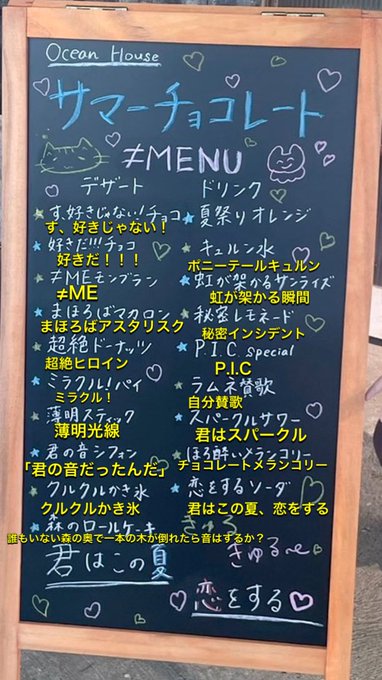 Ocean House
サマーチョコレート
≠MENU
デザート
ドリンク
す、好きじゃない!チョコ
す、好きじゃない！
好きだ!!!チョコ
好きだ！！！
≠MEモンブラン
≠ME
まほろばマカロン
まほろばアスタリスク
超絶ドーナッツ
超絶ヒロイン
ミラクル!パイ
ミラクル！
薄明スティック
薄明光線
君の音シフォン
「君の音だったんだ」
クルクルかき氷
クルクルかき氷
森のロールケーキ
誰もいない森の奥で一本の木が倒れたら音はするか？
夏祭りオレンジ
キュルン水
ポニーテールキュルン
虹が架かるサンライズ
虹が架かる瞬間
秘密レモネード
秘密インシデント
P.I.C special
P.I.C
ラムネ賛歌
自分賛歌
スパークルサワー
君はスパークル
ほろ酔いメランコリー
チョコレートメランコリー
恋をするソーダ
君はこの夏、恋をする
きゅる
きゅる〜ん
君はこの夏
恋をする